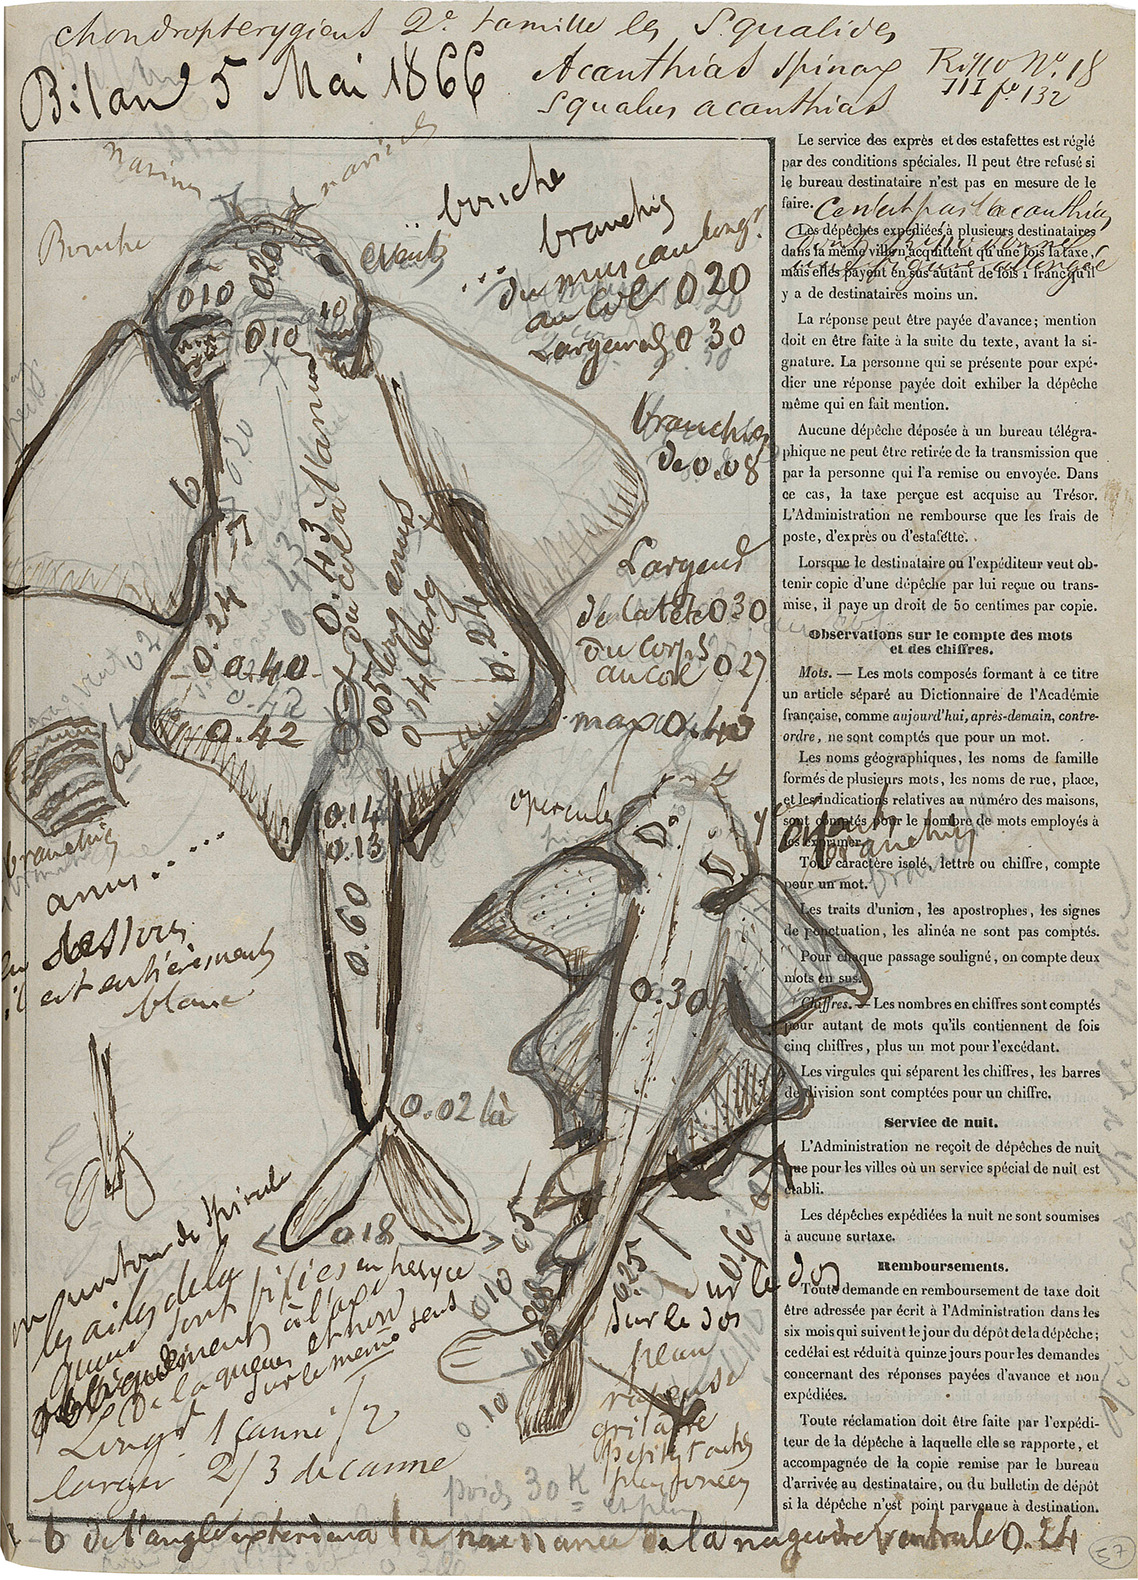 Chondropterygiens 2e famille les Squalides
Bilan 5 Mai 1866
Acanthias Spinax
Squalus acanthias
Risso No. 18
III fo. 132
narines
narines
Bouche
évents
bouche
branchies
du museau longr.
au col 0 20
Largeur 0 30
010
020
010
10
branchies
de 0.08
Largeur
de la tête 0 30
du corps
au col 0 27
max 0.43
b
0.20
0.43 du col à l'anus
0.43
0.24
0.24
0.40
0.42
0.42
005 long anus
014 large
a
branchies
anus
dessous
il est entièrement
blanc
0.14
0.13
0.60
0.02 là
018
opercule
branchies
0.30
05
010
0.10
025
sur le dos
sur le dos
peau
grisâtre
petites taches
plus foncées
poids 30 K
les ailes de la
queue sont fixées en
obliquement à l'axe
de la queue et non
sur le même sens
Longr. 1 canne 1/2
largeur 2/3 de canne
b de l'angle externe à la naissance de la nageoire ventrale 0.24
57
Ce n'est pas l'acanthias
Le service des exprès et des estafettes est réglé
par des conditions spéciales. Il peut être refusé si
le bureau destinataire n'est pas en mesure de le
faire.
Les dépêches expédiées à plusieurs destinataires
dans la même ville n'acquittent qu'une fois la taxe,
mais elles payent en sus autant de fois 1 franc qu'il
y a de destinataires moins un.
La réponse peut être payée d'avance; mention
doit en être faite à la suite du texte, avant la si-
gnature. La personne qui se présente pour expé-
dier une réponse payée doit exhiber la dépêche
même qui en fait mention.
Aucune dépêche déposée à un bureau télégra-
phique ne peut être retirée de la transmission que
par la personne qui l'a remise ou envoyée. Dans
ce cas, la taxe perçue est acquise au Trésor.
L'Administration ne rembourse que les frais de
poste, d'exprès ou d'estafette.
Lorsque le destinataire ou l'expéditeur veut ob-
tenir copie d'une dépêche par lui reçue ou trans-
mise, il paye un droit de 50 centimes par copie.
Observations sur le compte des mots
et des chiffres.
Mots. — Les mots composés formant à ce titre
un article séparé au Dictionnaire de l'Académie
française, comme aujourd'hui, après-demain, contre-
ordre, ne sont comptés que pour un mot.
Les noms géographiques, les noms de famille
formés de plusieurs mots, les noms de rue, place,
et les indications relatives au numéro des maisons,
sont comptés pour le nombre de mots employés à
les exprimer.
Tout caractère isolé, lettre ou chiffre, compte
pour un mot.
Les traits d'union, les apostrophes, les signes
de ponctuation, les alinéa ne sont pas comptés.
Pour chaque passage souligné, on compte deux
mots en sus.
Chiffres. — Les nombres en chiffres sont comptés
pour autant de mots qu'ils contiennent de fois
cinq chiffres, plus un mot pour l'excédant.
Les virgules qui séparent les chiffres, les barres
de division sont comptées pour un chiffre.
Service de nuit.
L'Administration ne reçoit de dépêches de nuit
que pour les villes où un service spécial de nuit est
établi.
Les dépêches expédiées la nuit ne sont soumises
à aucune surtaxe.
Remboursements.
Toute demande en remboursement de taxe doit
être adressée par écrit à l'Administration dans les
six mois qui suivent le jour du dépôt de la dépêche;
ce délai est réduit à quinze jours pour les demandes
concernant des réponses payées d'avance et non
expédiées.
Toute réclamation doit être faite par l'expédi-
teur de la dépêche à laquelle elle se rapporte, et
accompagnée de la copie remise par le bureau
d'arrivée au destinataire, ou du bulletin de dépôt
si la dépêche n'est point parvenue à destination.